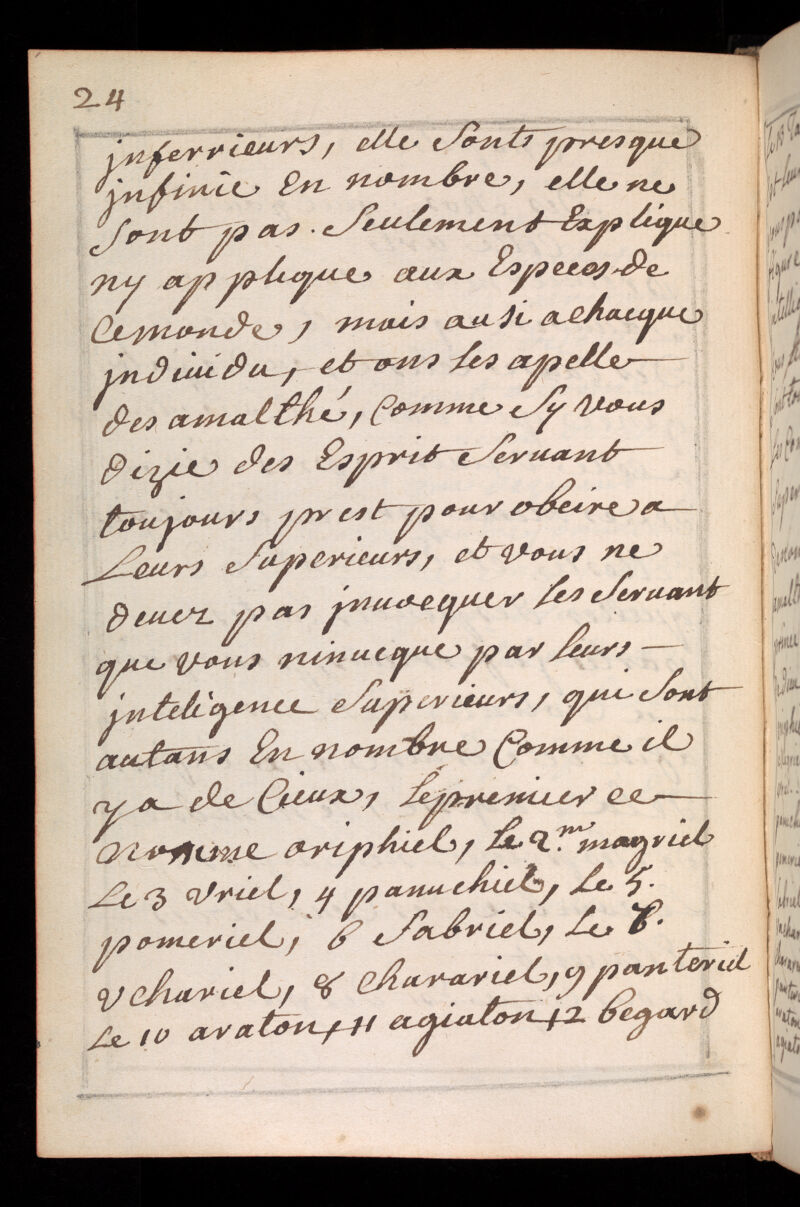 24
jnferrieurs, elle Sonts presque
jnfinie En nombre, elle ne
Sont pas. Seulement Explique
ny applique aux Especes de
Cemonde, mais ausi achacque
jndiuidu, et ons les apelle
des amalthé, Comme Sy vous
dizie des Esprit Seruant
toujours prest pour obeire a
Leurs Superieurs, et vous ne
deuez pas jnuoequer les Seruant
que vous ninueque par leurs
jnteligence Superieurs, qui Sont
autans En nombre Comme il
ya de Cieux, lepremier ce
nomme oriphiel, Le 2.me magriel
Le 3 Vriel, 4 panuchiel, Le 5.
pomeriel, 6 Sabriel, Le 7.
vchariel, 8 Charariel, 9 panteriel
Le 10 araton, 11 agiaton 12 begard